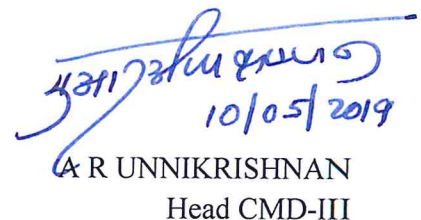 10/05/2019
A R UNNIKRISHNAN
Head CMD-III